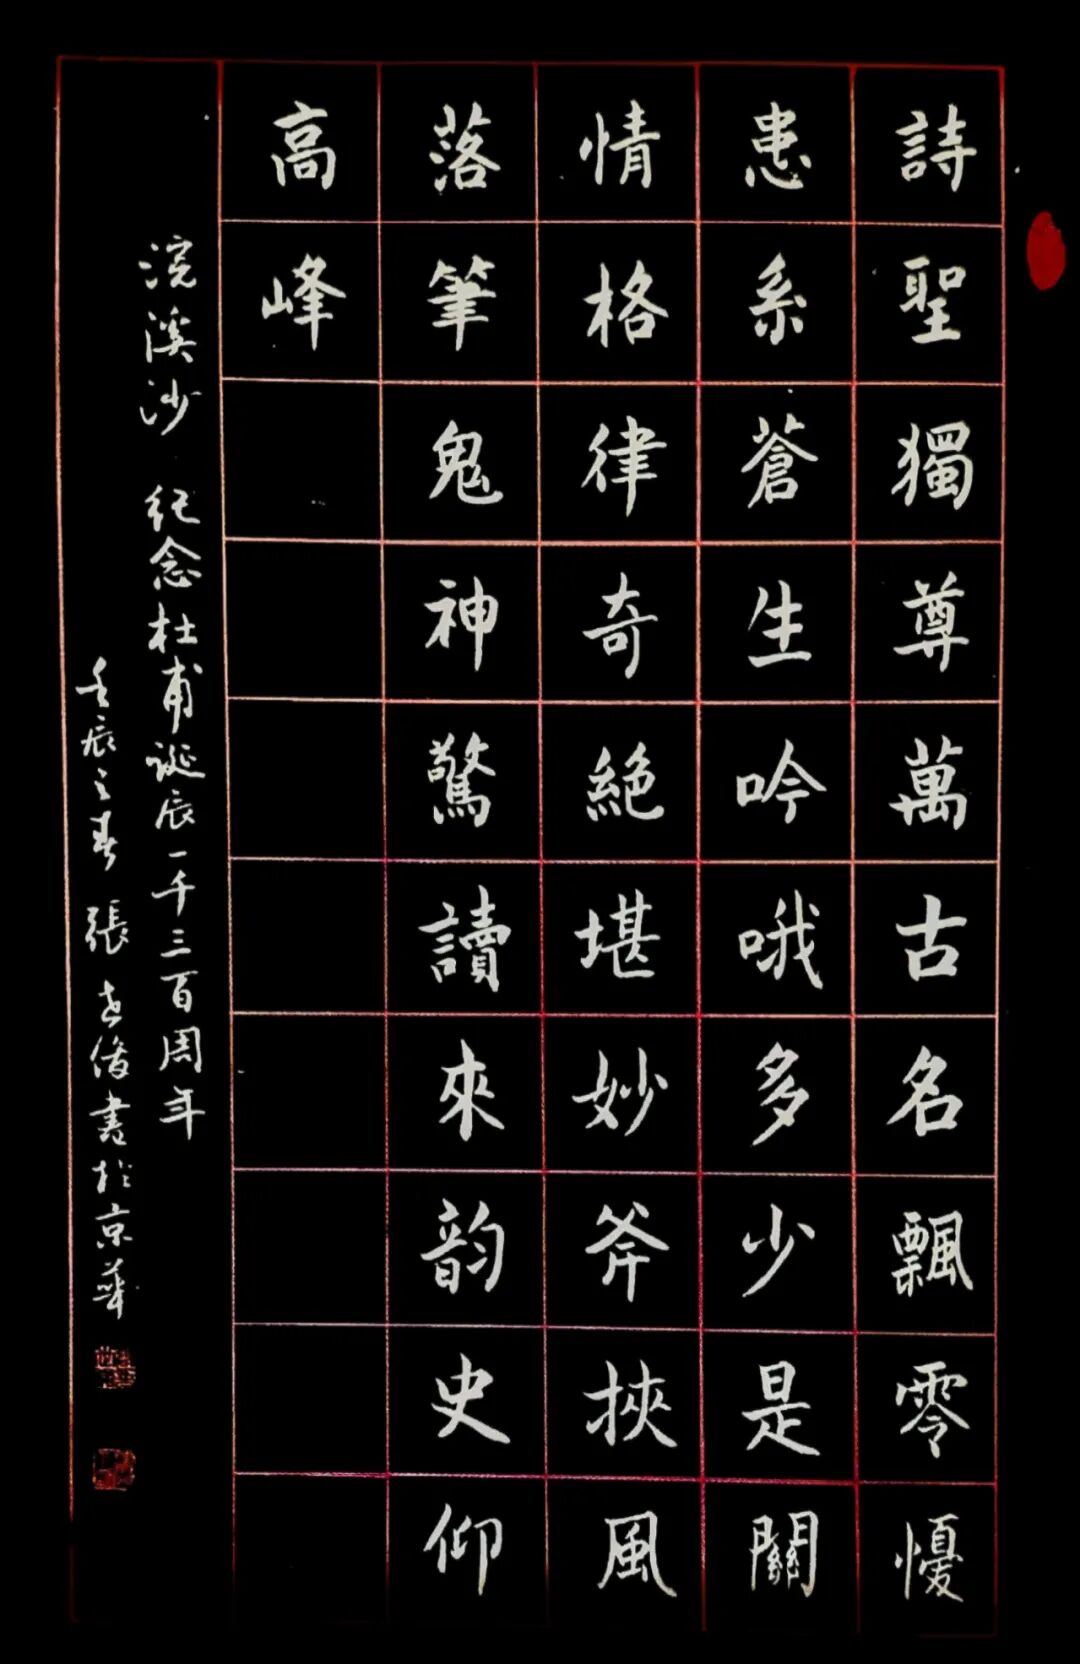 詩聖獨尊萬古名飄零懮
患系蒼生吟哦多少是關
情格律奇絕堪妙斧挾風
落筆鬼神驚讀來韵史仰
高峰
浣溪沙 纪念杜甫誕辰一千三百周年
壬辰之春 張志俊書於京華